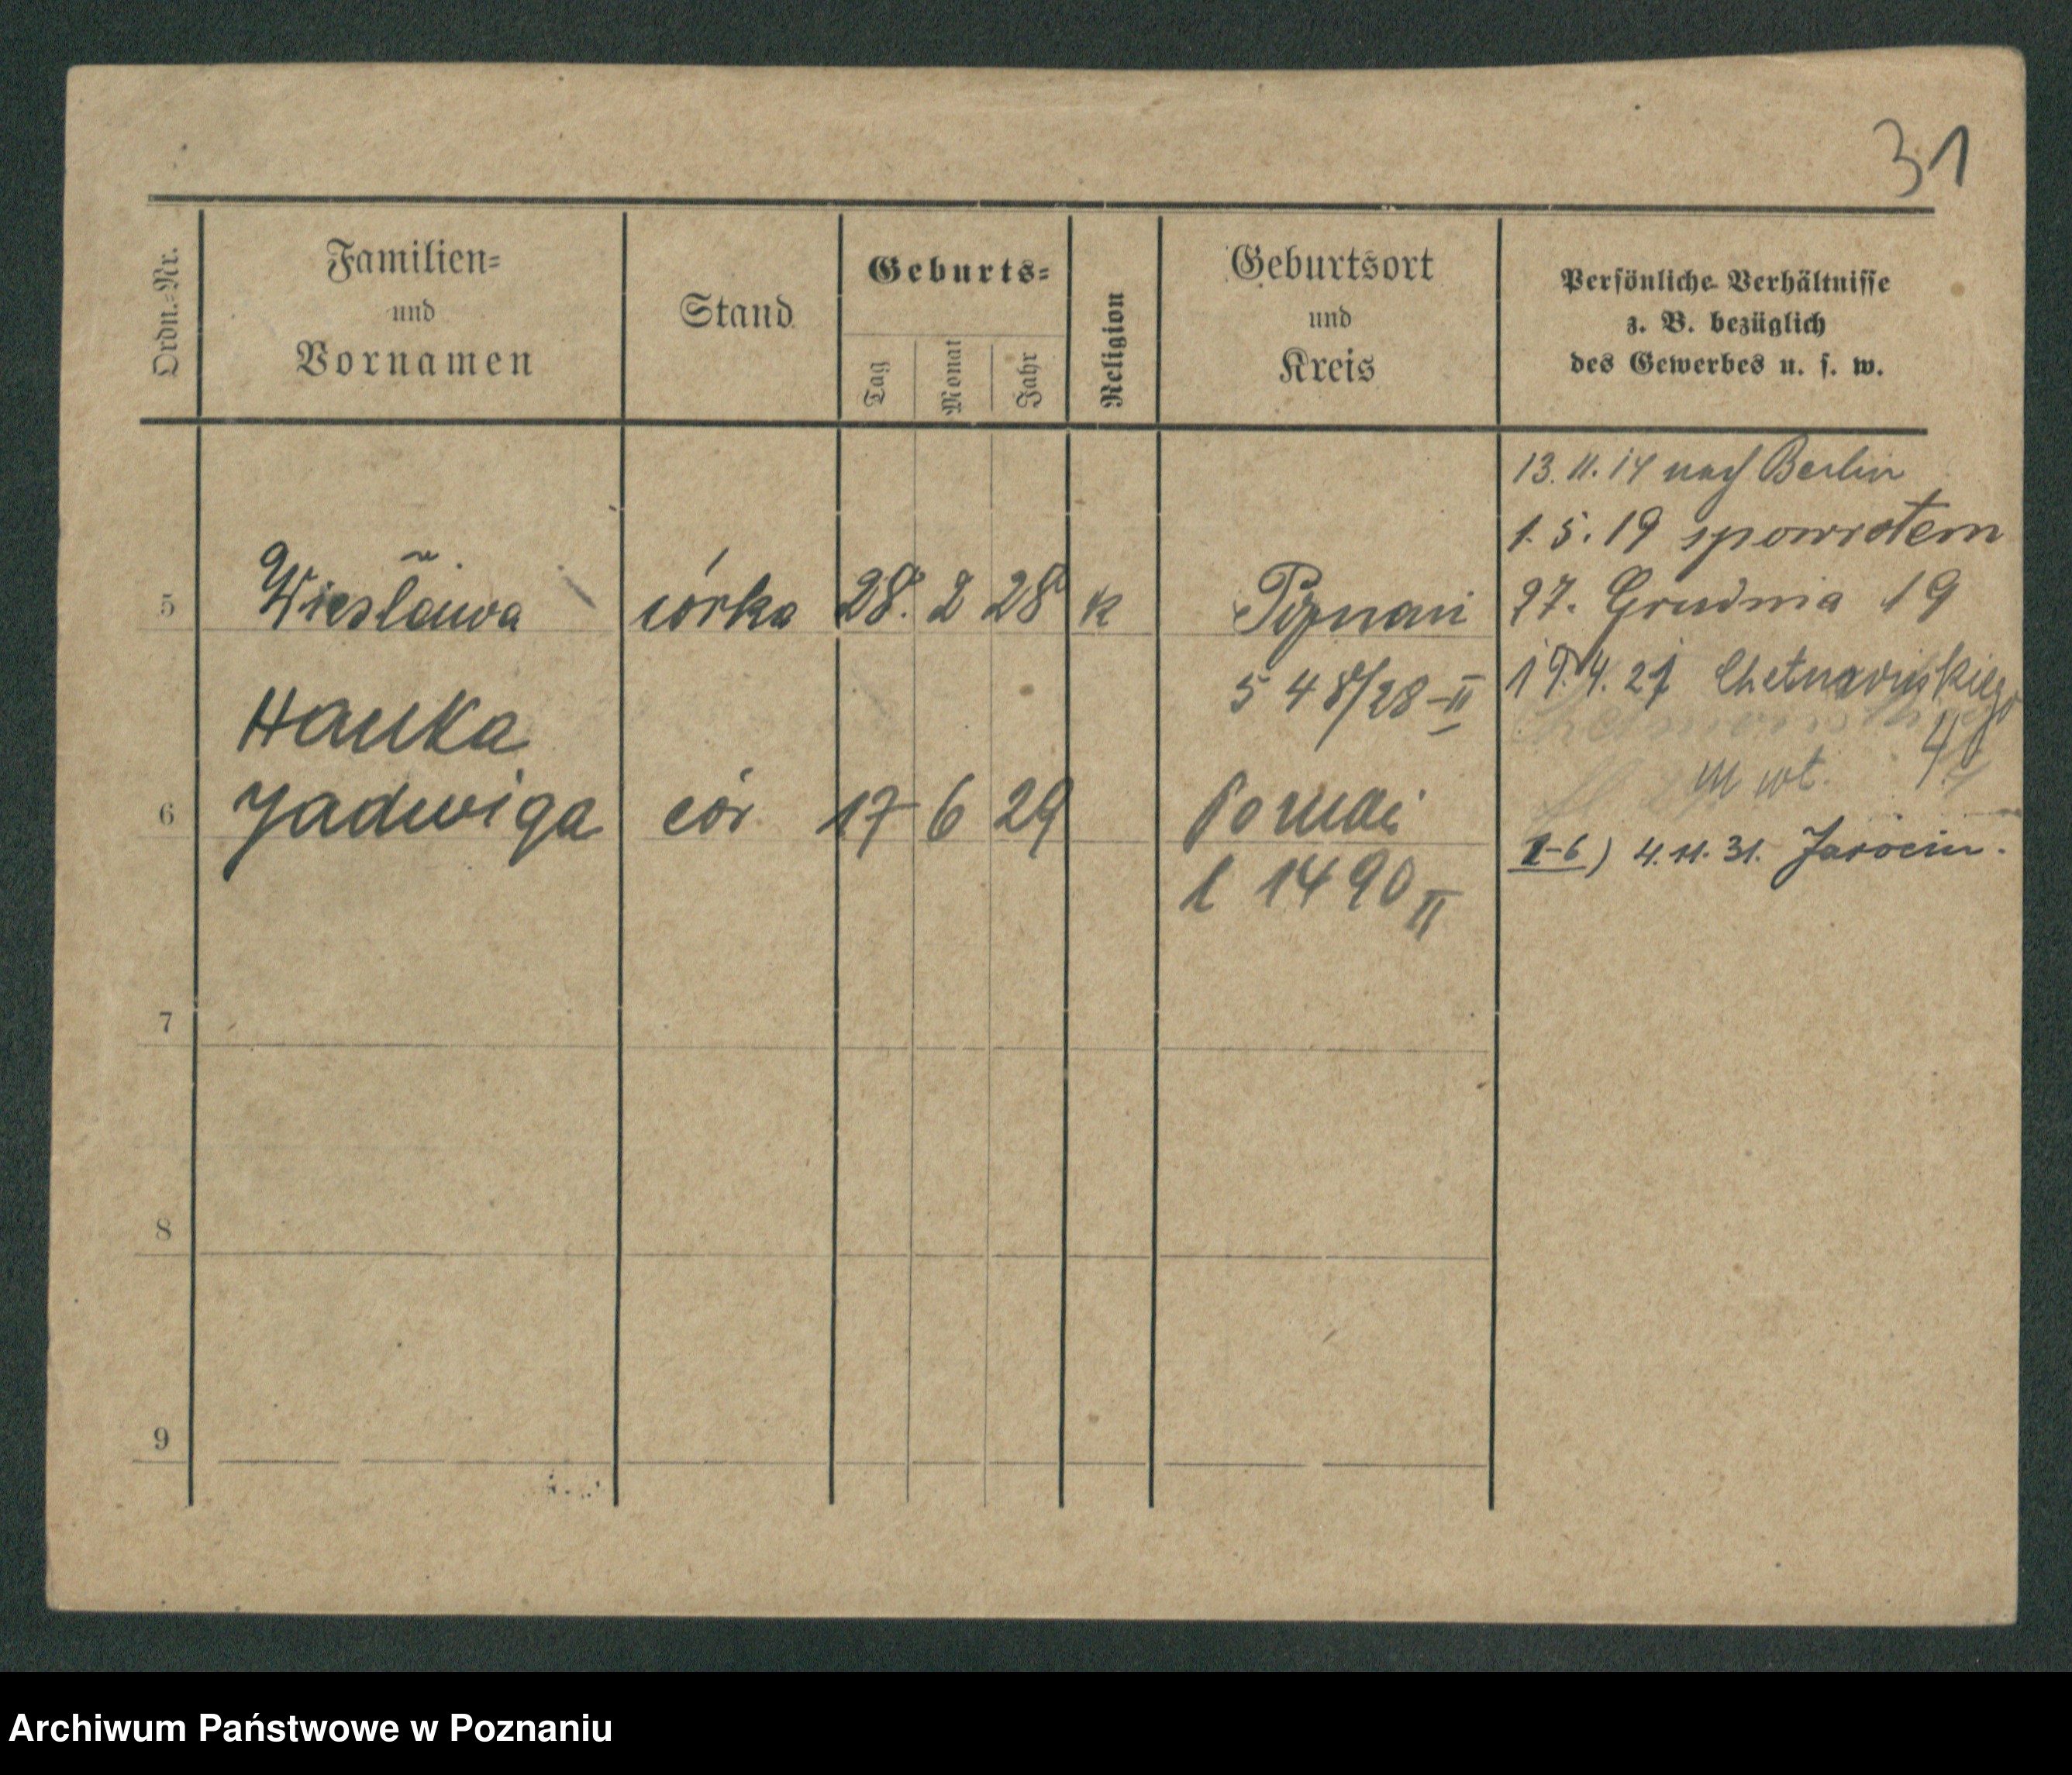 31
Ordn.-Nr.
Familien-
und
Vornamen
Stand
Geburts-
Tag
Monat
Jahr
Religion
Geburtsort
und
Kreis
Persönliche Verhältnisse
z. B. bezüglich
des Gewerbes u. s. w.
13. 11. 14 nach Berlin
1. 5. 19 spowrotem
5 Wiesława córka 28. 2 28 k Poznań
27. Grudnia 19
548/28-II
19.4.21
Hanka
m wt. 4
6 Jadwiga cór 17 6 29
1-6) 4. 11. 31. Jarocin.
1490 II
7
8
9
Archiwum Państwowe w Poznaniu